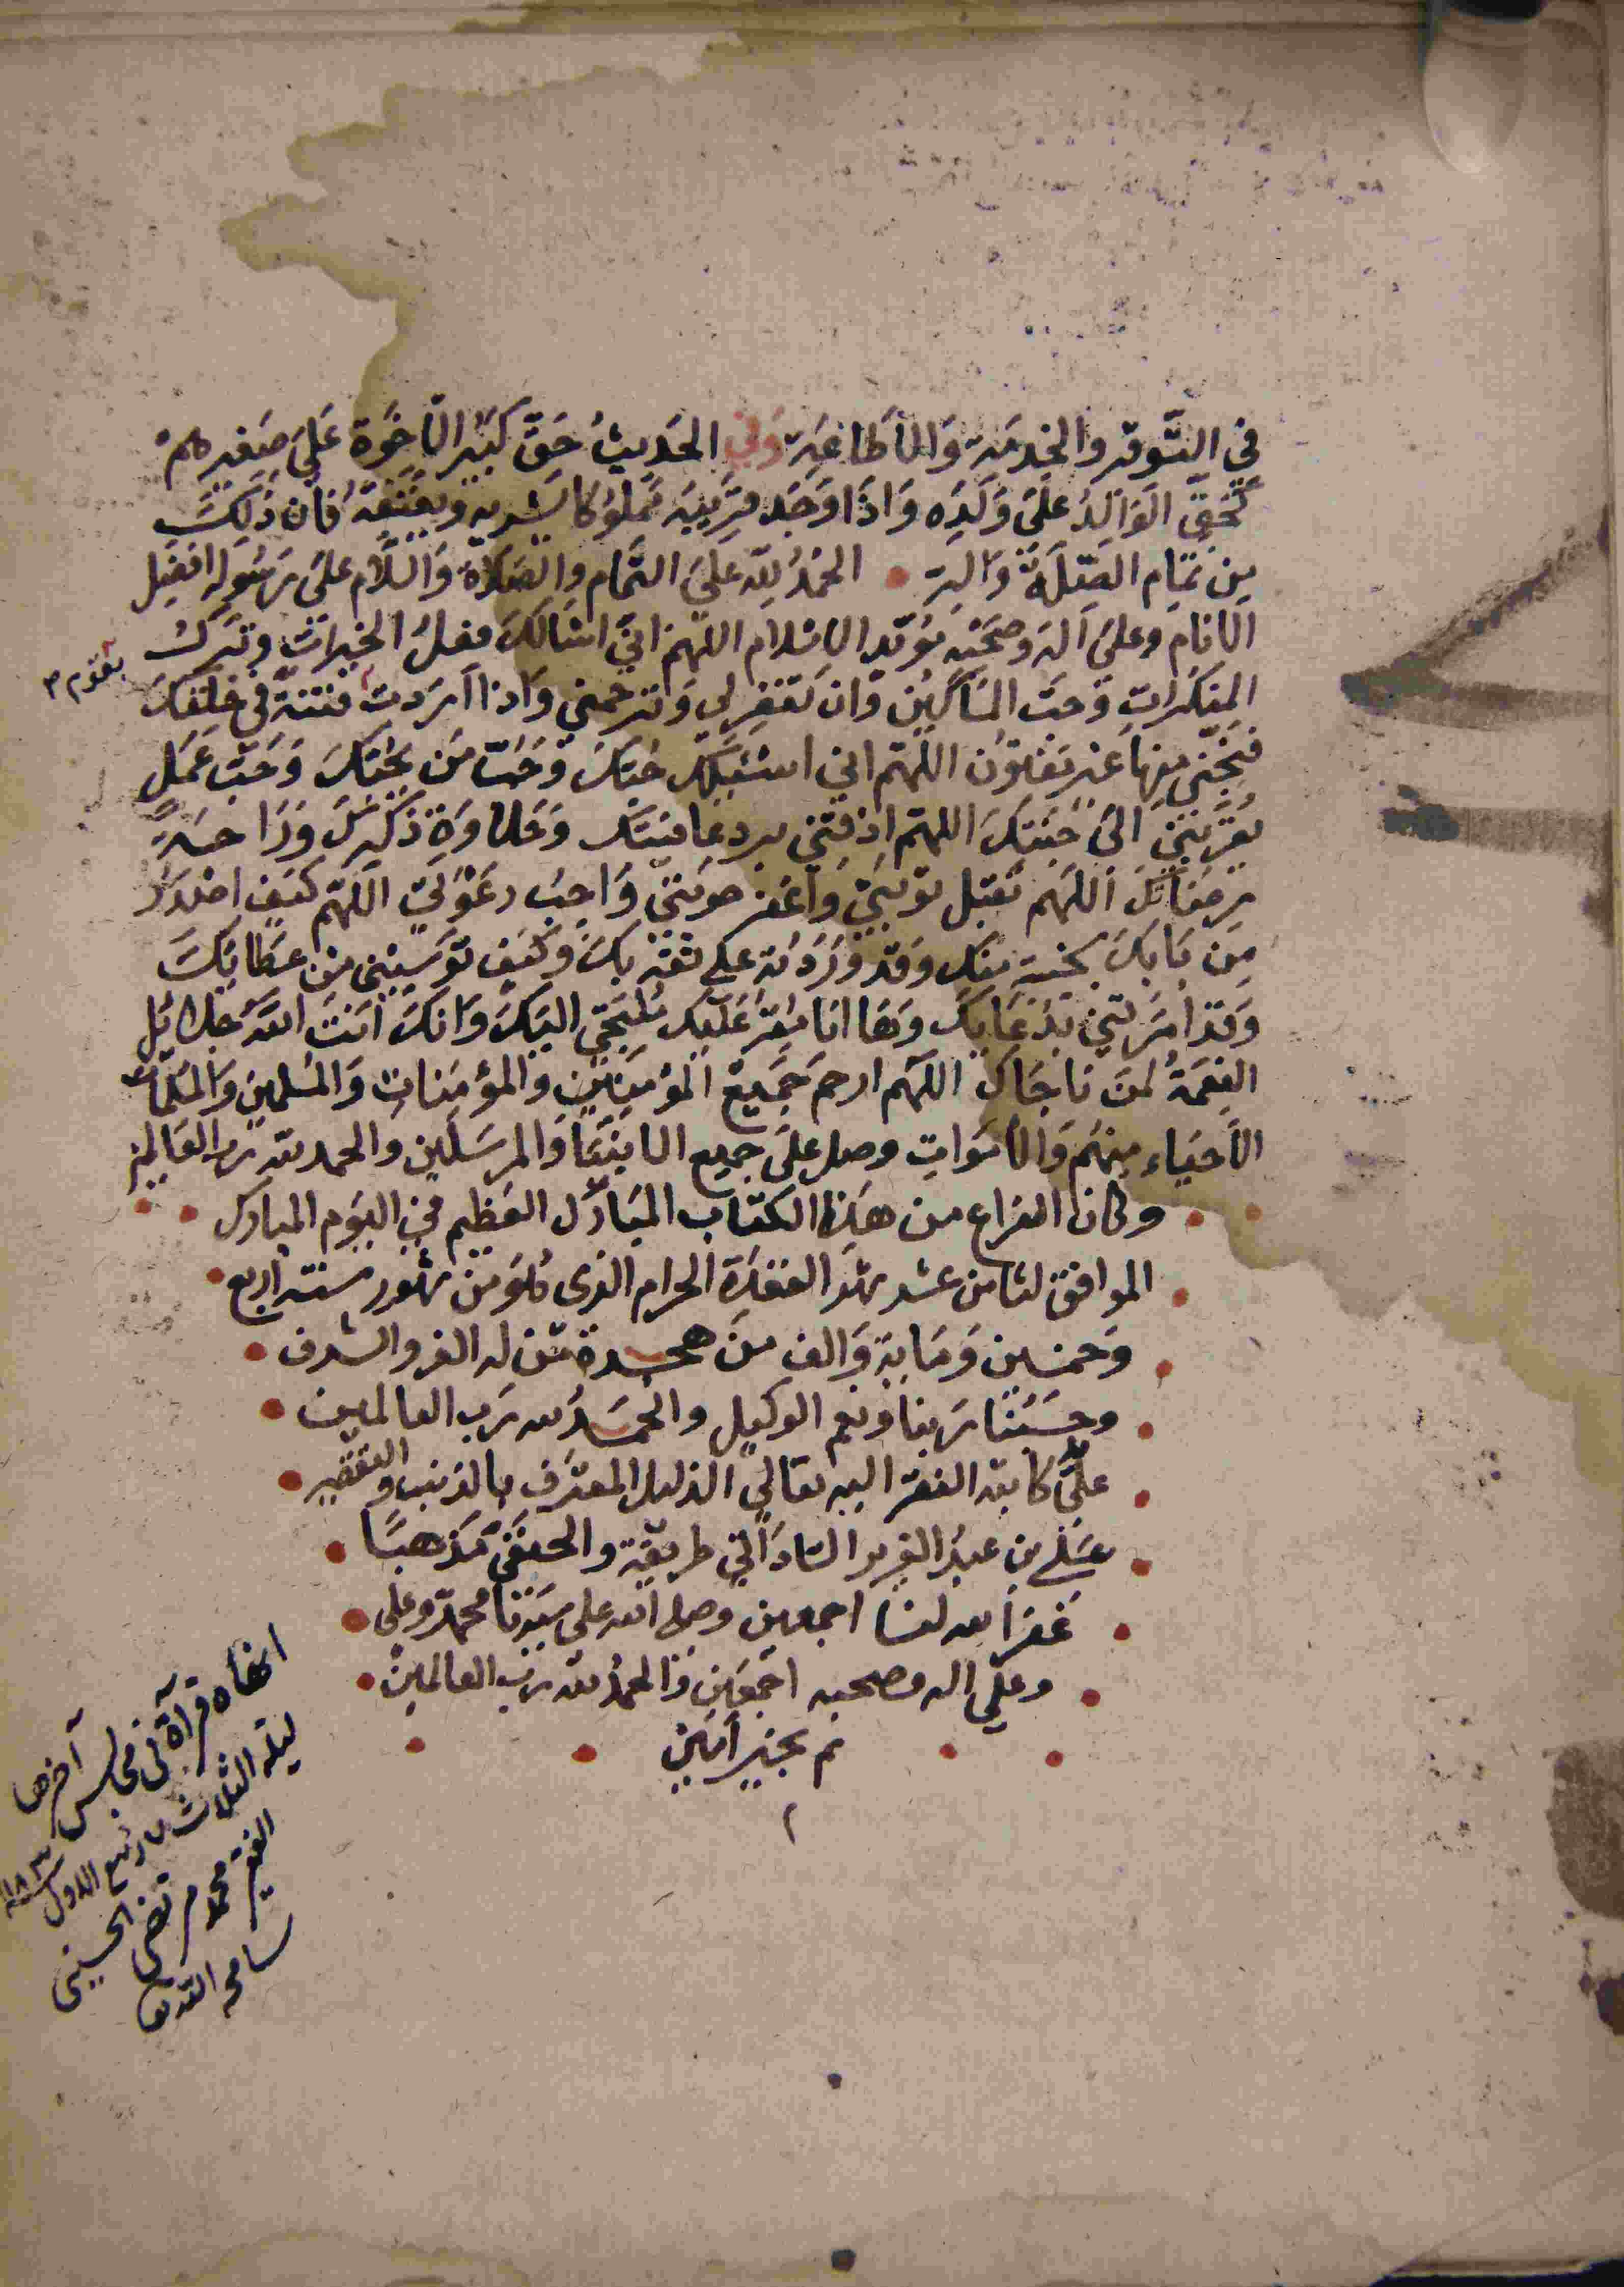 في التوقير والخدمة والاطاعة وفي الحديث حق كبير الاخوة على صغيرهم
كحق الوالد على ولده واذا وجد قريبه مملوكا يشريه ويعتقه فان ذلك
من تمام الصلة والبر الحمد لله على التمام والصلاة والسلام على رسوله افضل
الانام وعلى اله وصحبه مؤيد الاسلام اللهم اني اسالك فعل الخيرات وترك
المنكرات وحب المساكين وان تغفر لي وترحمني واذا اردت بقوم فتنة في خلقك
فنجني منها غير مفتون اللهم اني اسئلك حبك وحب من يحبك وحب عمل
يقربني الى حبك اللهم اذقني برد عافيتك وحلاوة ذكرك وراحة
رضائك اللهم تقبل توبتي واغفر حوبتي واجب دعوتي اللهم كيف
من بابك بخيبة منك وقد وردته على ثقة بك وكيف تؤيسني من عطايك
وقد امرتني بدعايك وها انا مقر عليك ملتجئ اليك وانك انت الله جلائل
النعمة لمن ناجاك اللهم ارحم جميع المؤمنين والمؤمنات والمسلمين والمسلمات
الاحياء منهم والاموات وصل على جميع الانبيا والمرسلين والحمد لله رب العالمين
وكان الفراغ من هذا الكتاب المبارك العظيم في اليوم المبارك
الموافق لثامن عشر شهر القعدة الحرام الذي هو من شهور سنة اربع
وخمسين ومایة والف من هجرة من له العز والشرف
وحسبنا ربنا ونعم الوكيل والحمد لله رب العالمين
على كاتبه الفقير اليه تعالى الذليل المعترف بالذنب والتقصير
علي بن عبد الشاذلي طريقة والحنفي مذهبا
غفر الله لنا اجمعين وصلى الله على سيدنا محمد وعلى
وعلى اله وصحبه اجمعين والحمد لله رب العالمين
تم بخير امين
م
انهاه قراءة في مجالس آخرها
ليلة الثلاث ٧ ربيع الاول ١١٨٣
الفقير محمد مرتضى الحسيني
سامحه الله